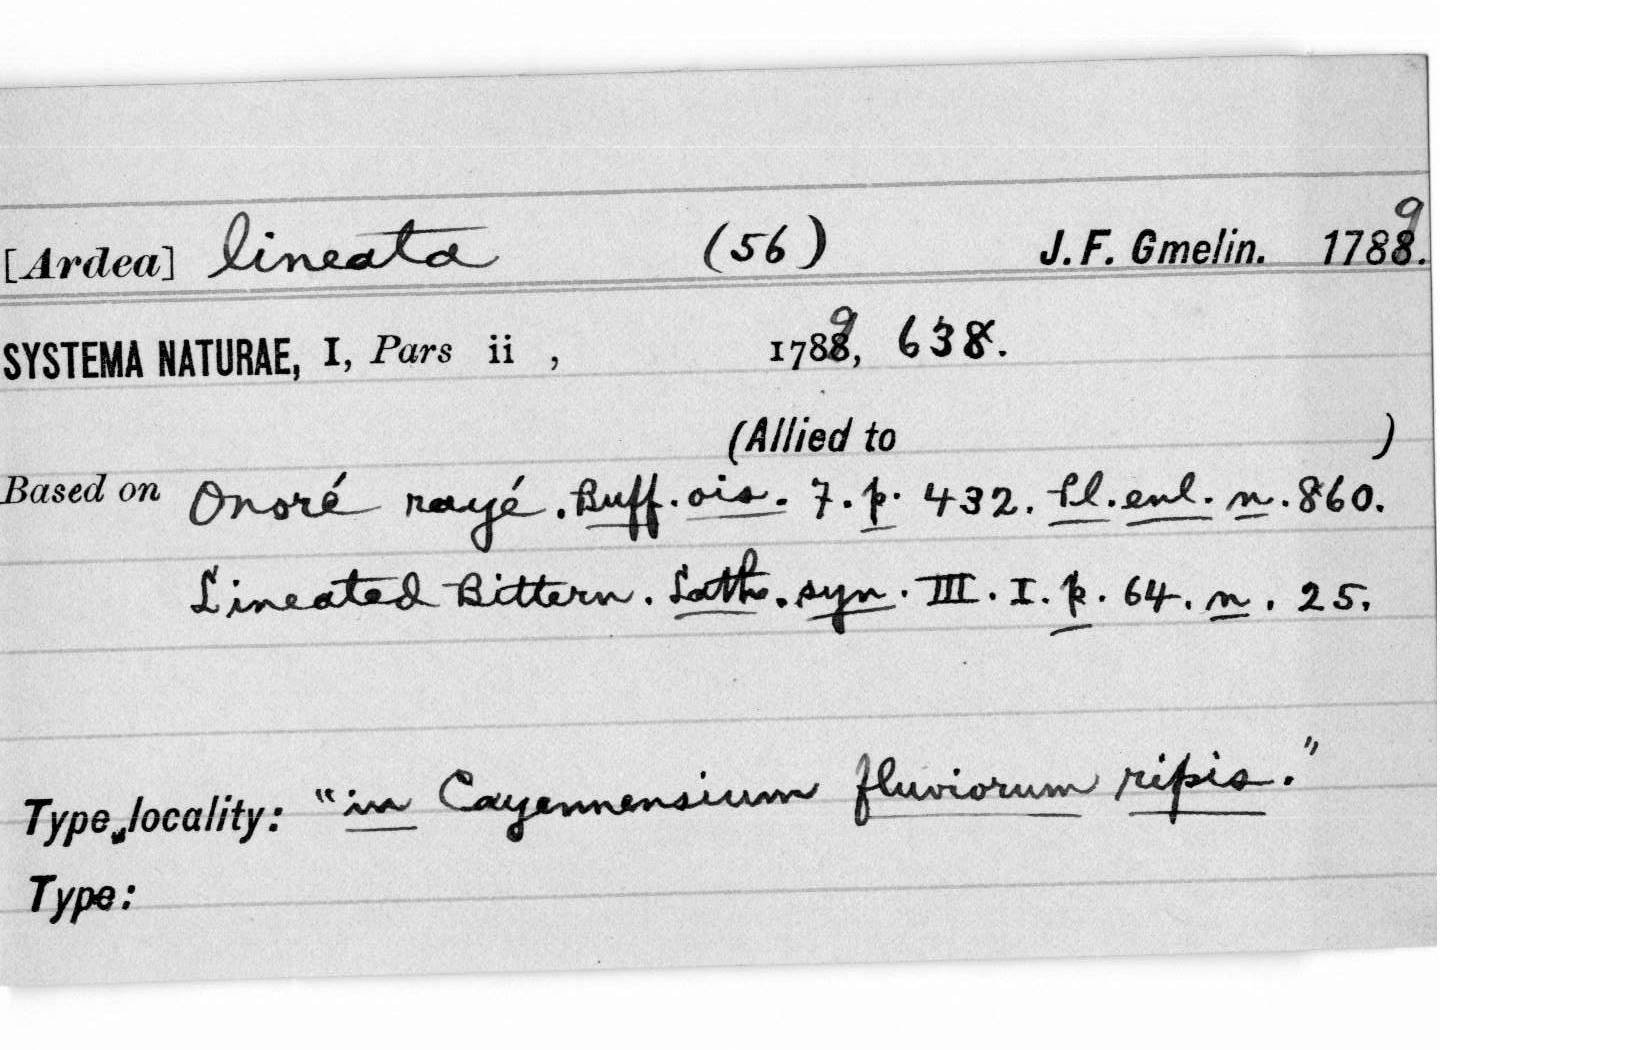 [Ardea] lineata (56) J. F. Gmelin. 1789.
SYSTEMA NATURAE, I, Pars ii , 1789, 638.
(Allied to )
Based on Onoré rayé. Buff. ois. 7. p. 432. Pl. enl. n. 860.
Lineated Bittern. Lath. syn. III. I. p. 64. n. 25.
Type locality: "in Cayennensium fluviorum ripis."
Type: